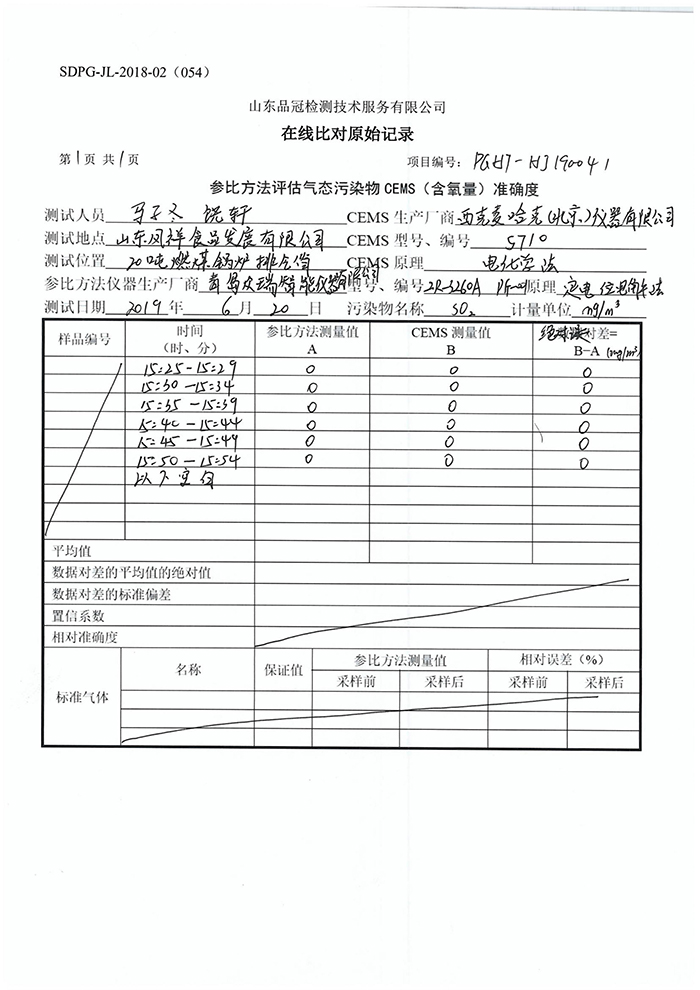 SDPG-JL-2018-02（054）
山东品冠检测技术服务有限公司
在线比对原始记录
第1页 共1页 项目编号：PGHJ-HJ190041
参比方法评估气态污染物 CEMS（含氧量）准确度
测试人员 轩 CEMS 生产厂商 西克麦哈克(北京)仪器有限公司
测试地点 山东凤祥食品发展有限公司 CEMS 型号、编号 S710
测试位置 20吨燃煤锅炉排气筒 CEMS 原理 电化学法
参比方法仪器生产厂商 青岛众瑞智能仪器有限公司 型号、编号 ZR-3260A 原理 定电位电解法
测试日期 2019 年 6 月 20 日 污染物名称 SO₂ 计量单位 mg/m³
样品编号 时间（时、分） 参比方法测量值 A CEMS 测量值 B 对差=B-A (mg/m³)
15:25-15:29 0 0 0
15:30-15:34 0 0 0
15:35-15:39 0 0 0
15:40-15:44 0 0 0
15:45-15:49 0 0 0
15:50-15:54 0 0 0
以下空白
平均值
数据对差的平均值的绝对值
数据对差的标准偏差
置信系数
相对准确度
标准气体 名称 保证值 参比方法测量值 相对误差（%）
采样前 采样后 采样前 采样后